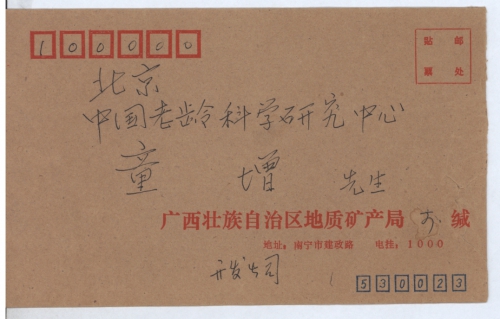 100000
贴 邮
票 处
北京
中国老龄科学研究中心
童增 先生
广西壮族自治区地质矿产局 缄
地址：南宁市建政路 电挂：1000
开发公司
530023